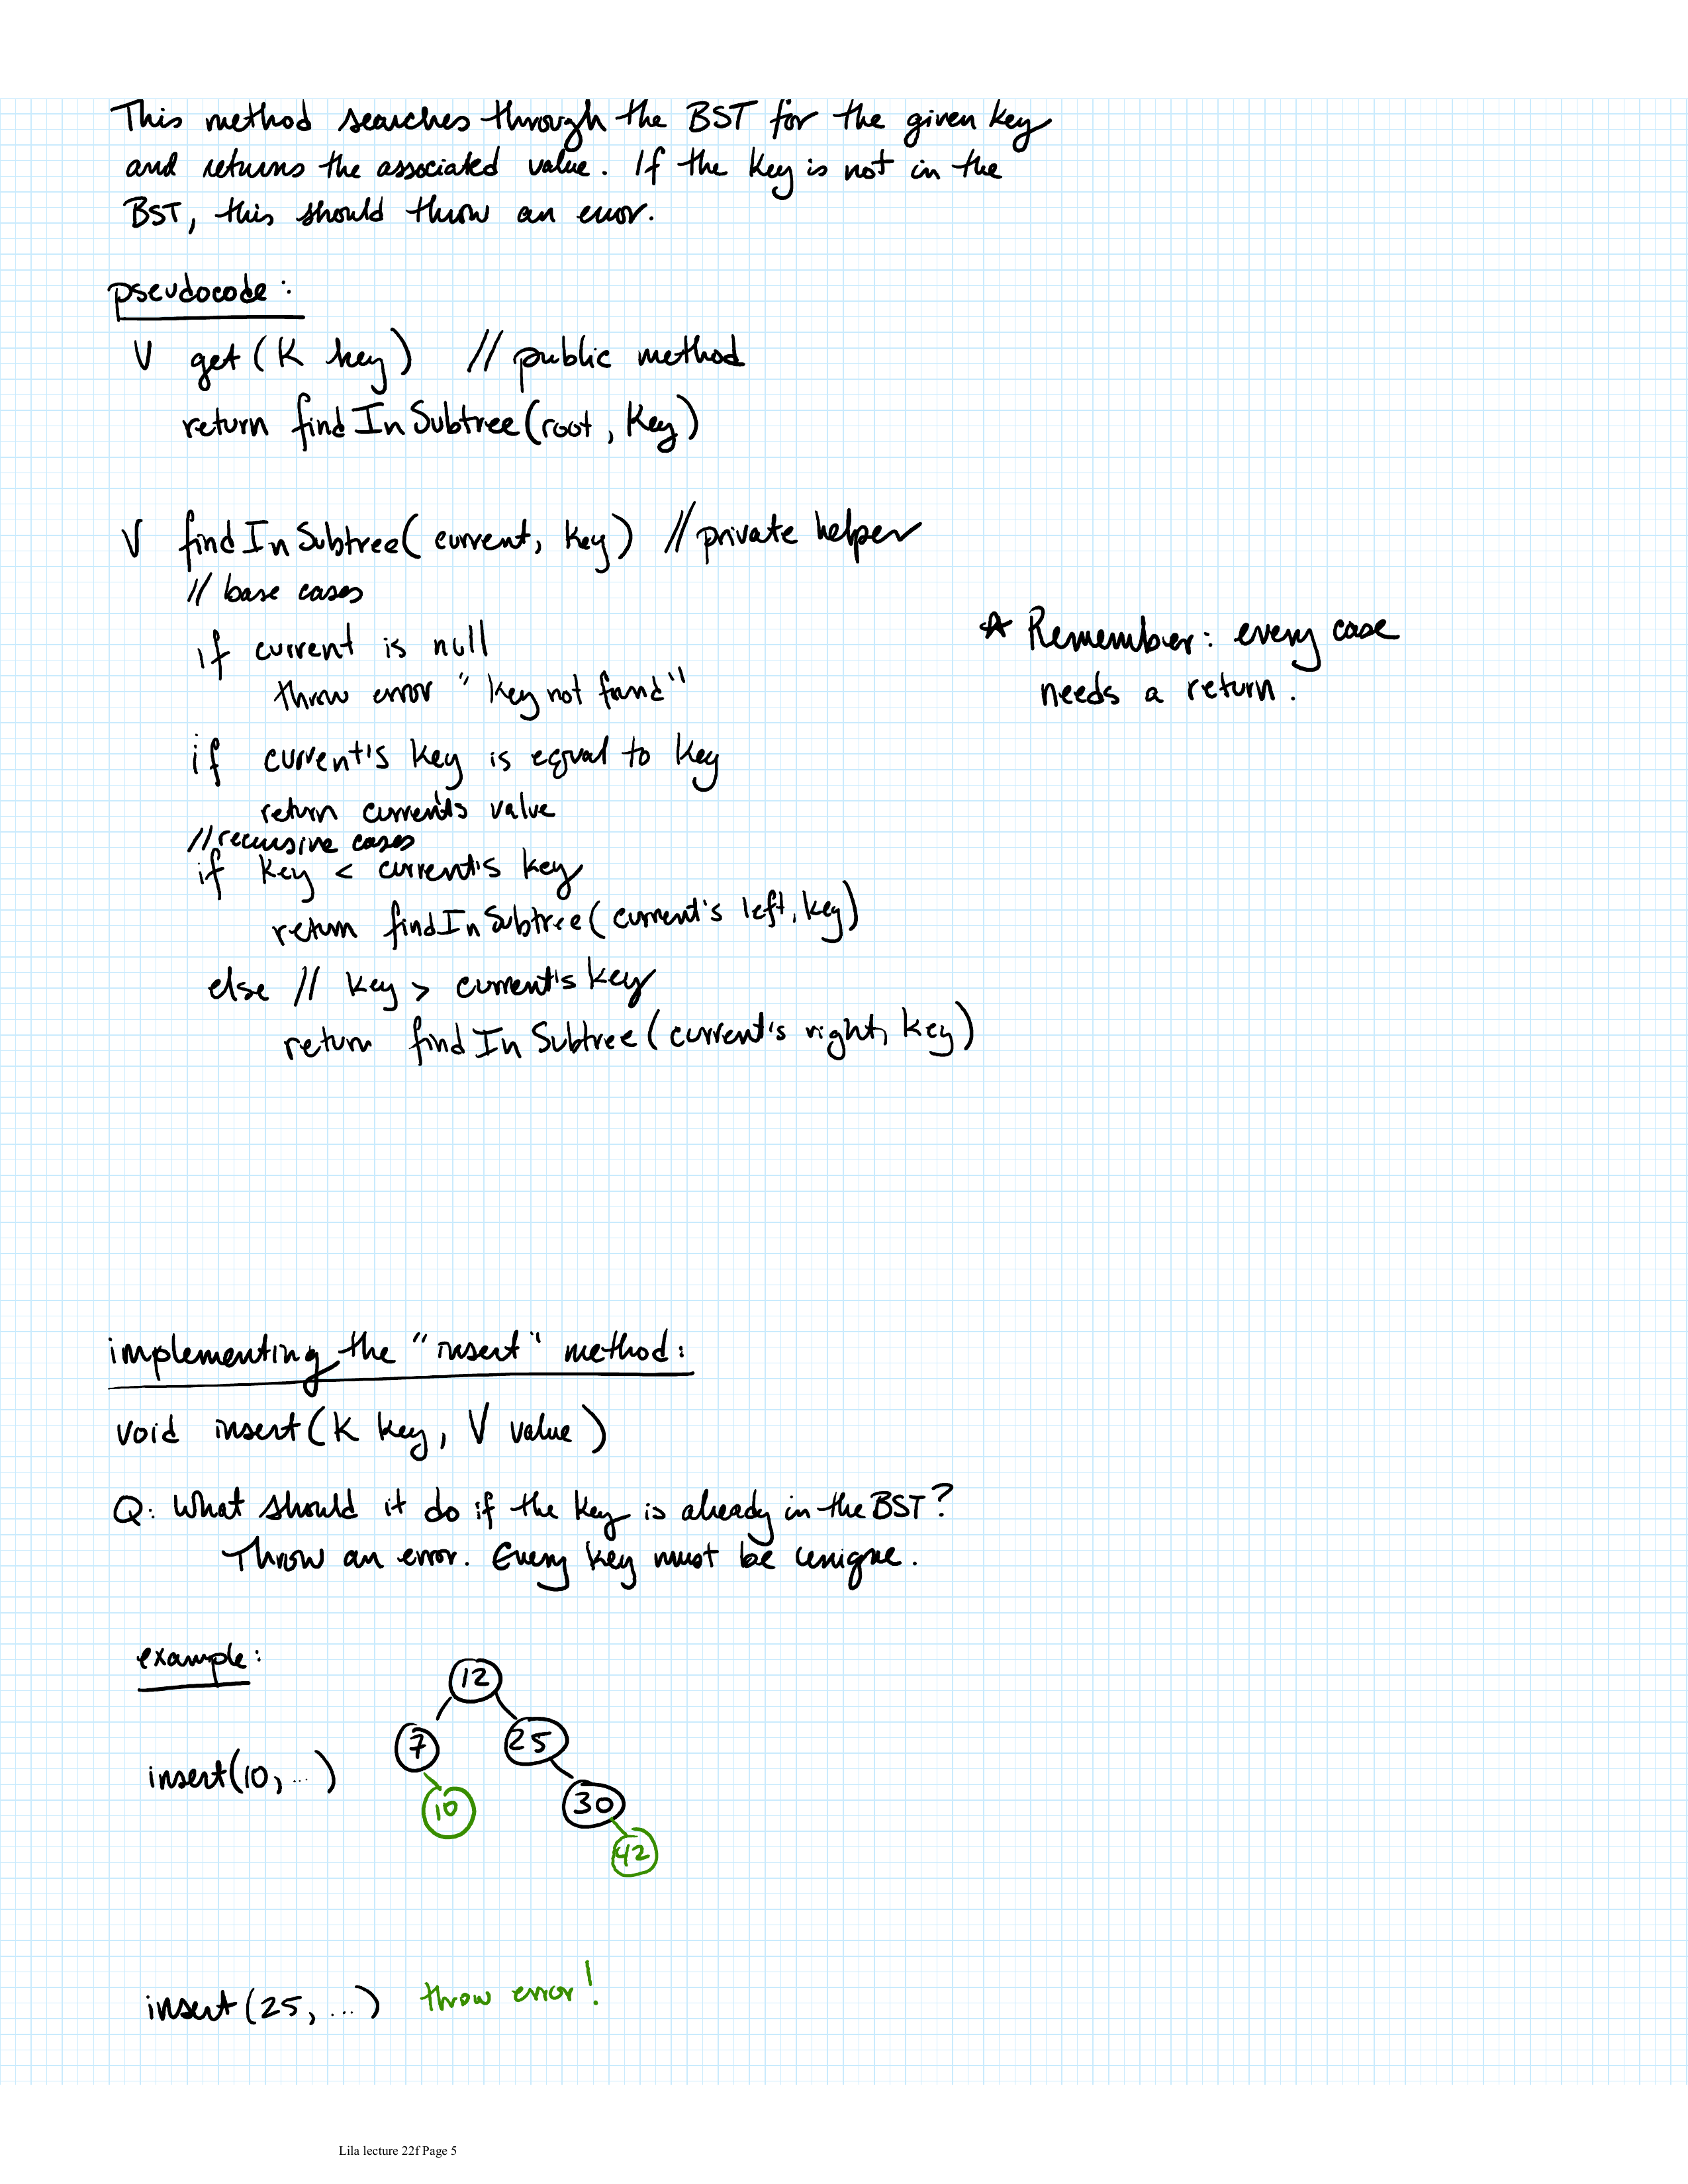 This method searches through the BST for the given key
and returns the associated value. If the key is not in the
BST, this should throw an error.
pseudocode:
V get(K key) // public method
return findInSubtree(root, key)
V findInSubtree(current, key) // private helper
// base cases
if current is null
throw error "key not found"
★ Remember: every case
needs a return.
if current's key is equal to key
return current's value
// recursive cases
if key < current's key
return findInSubtree(current's left, key)
else // key > current's key
return findInSubtree(current's right, key)
implementing the "insert" method:
void insert(K key, V value)
Q: What should it do if the key is already in the BST?
Throw an error. Every key must be unique.
example:
12
7 25
insert(10, ...)
10 30
42
insert(25, ...) throw error!
Lila lecture 22f Page 5